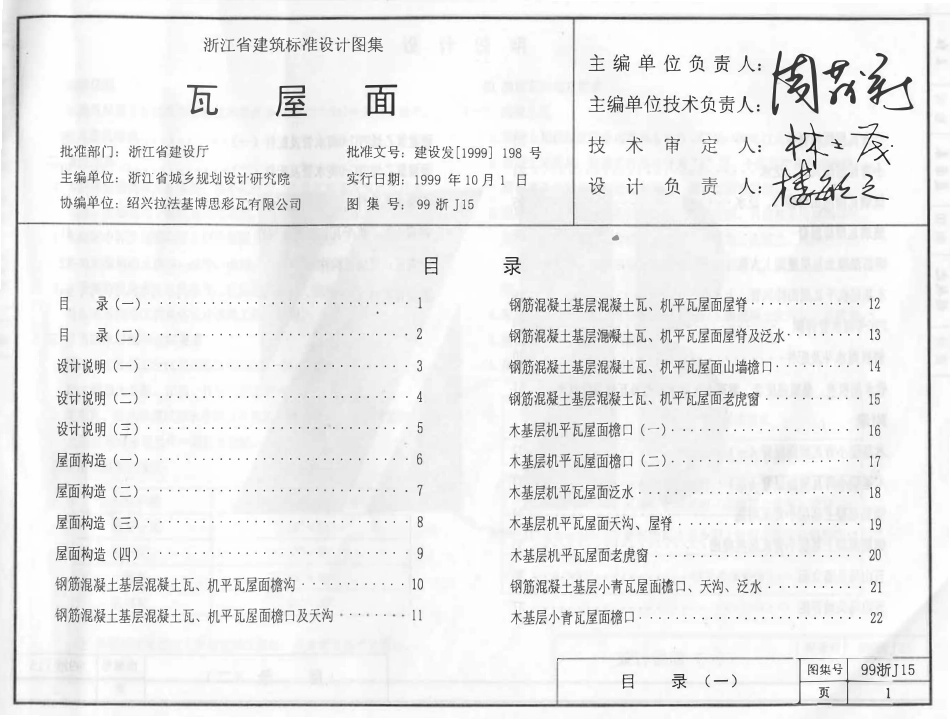 浙江省建筑标准设计图集
瓦 屋 面
批准部门：浙江省建设厅
批准文号：建设发[1999] 198 号
主编单位：浙江省城乡规划设计研究院
实行日期：1999 年10月1 日
协编单位：绍兴拉法基博思彩瓦有限公司
图 集 号：99浙J15
主 编 单 位 负 责 人：
主编单位技术负责人：
技 术 审 定 人：
设 计 负 责 人：
目 录
目 录（一） 1
目 录（二） 2
设计说明（一） 3
设计说明（二） 4
设计说明（三） 5
屋面构造（一） 6
屋面构造（二） 7
屋面构造（三） 8
屋面构造（四） 9
钢筋混凝土基层混凝土瓦、机平瓦屋面檐沟 10
钢筋混凝土基层混凝土瓦、机平瓦屋面檐口及天沟 11
钢筋混凝土基层混凝土瓦、机平瓦屋面屋脊 12
钢筋混凝土基层混凝土瓦、机平瓦屋面屋脊及泛水 13
钢筋混凝土基层混凝土瓦、机平瓦屋面山墙檐口 14
钢筋混凝土基层混凝土瓦、机平瓦屋面老虎窗 15
木基层机平瓦屋面檐口（一） 16
木基层机平瓦屋面檐口（二） 17
木基层机平瓦屋面泛水 18
木基层机平瓦屋面天沟、屋脊 19
木基层机平瓦屋面老虎窗 20
钢筋混凝土基层小青瓦屋面檐口、天沟、泛水 21
木基层小青瓦屋面檐口 22
目 录（一）
图集号 99浙J15
页 1